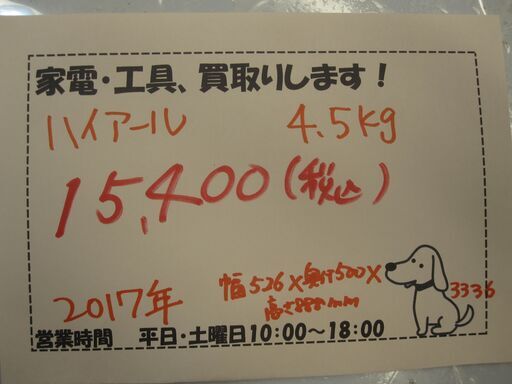 家電・工具、買取りします！
ハイアール 4.5kg
15,400(税込)
2017年
幅526×奥行500×
高さ888mm
3336
営業時間 平日・土曜日10:00～18:00